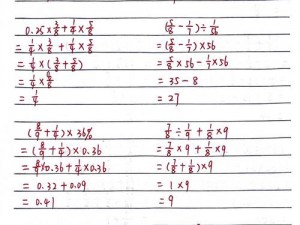 0.25×3/8+1/4×5/8
=1/4×3/8+1/4×5/8
=1/4×(3/8+5/8)
=1/4×8/8
=1/4
(5/8-1/7)÷1/56
=(5/8-1/7)×56
=5/8×56-1/7×56
=35-8
=27
(8/9+1/4)×36%
=(8/9+1/4)×0.36
=8/9×0.36+1/4×0.36
=0.32+0.09
=0.41
7/8÷1/9+1/8×9
=7/8×9+1/8×9
=(7/8+1/8)×9
=1×9
=9